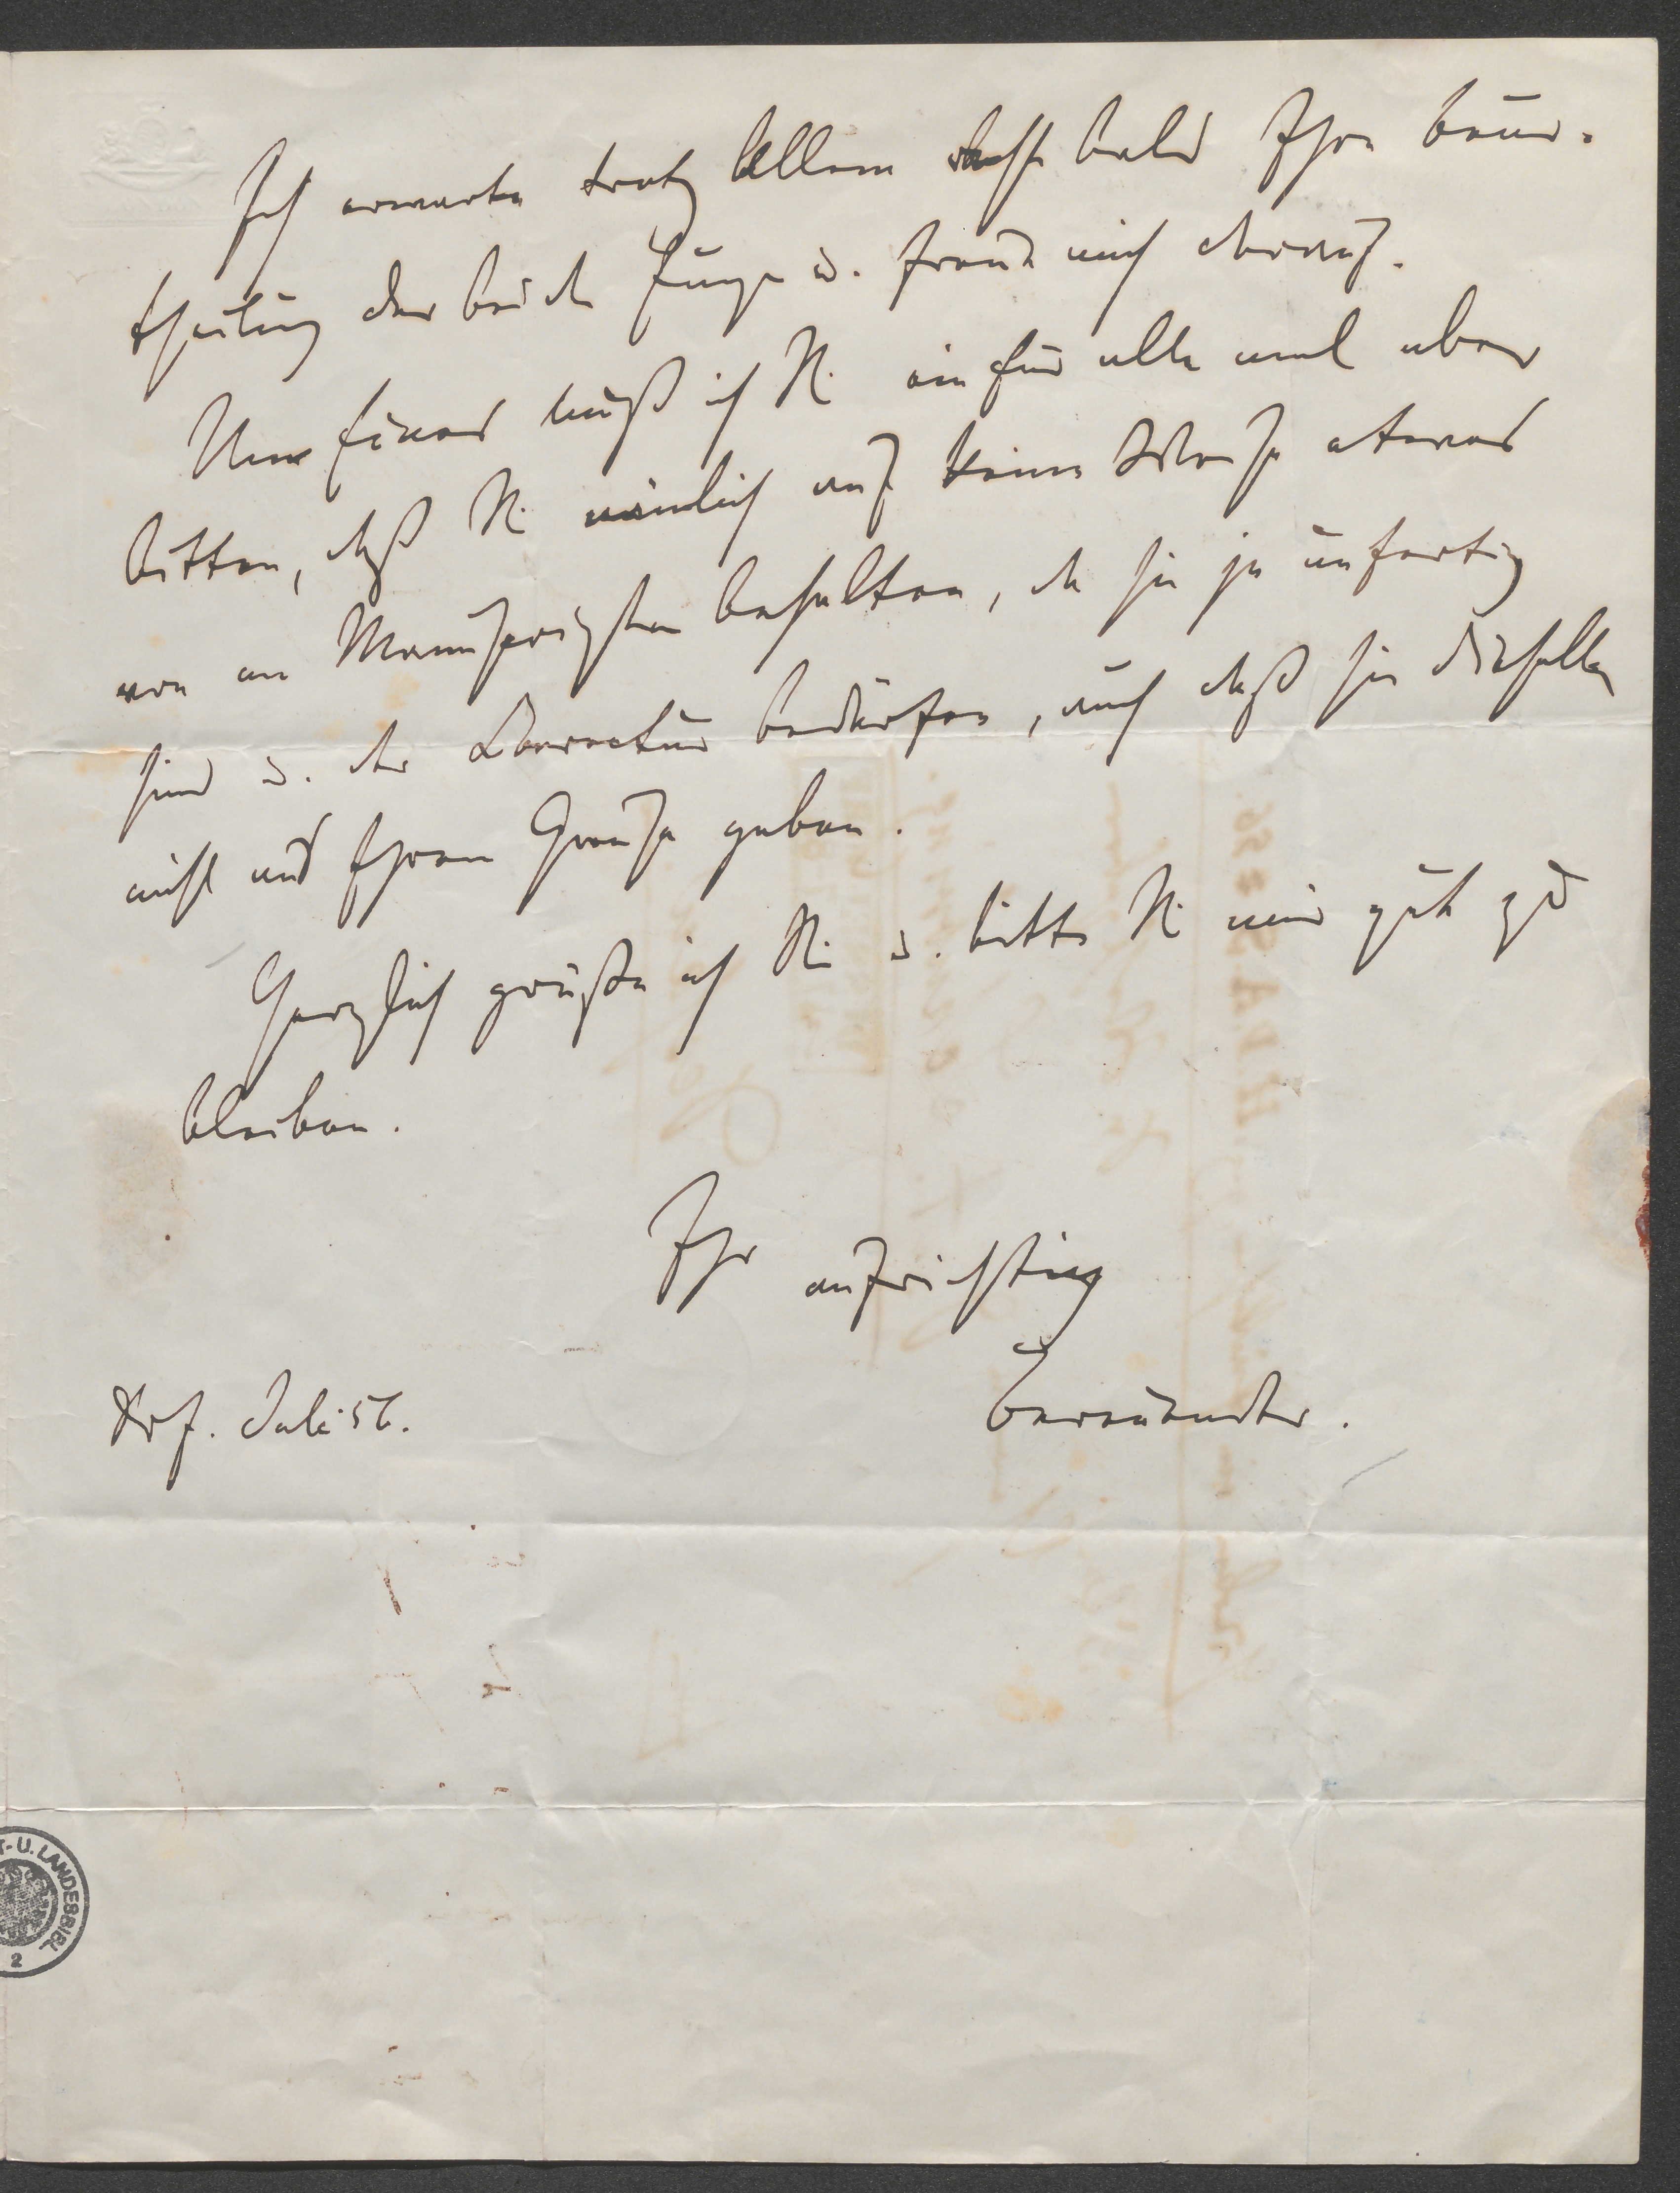 Ich erwarte trotz Allem recht bald Ihre Beur-
theilung der beide Dinge u. freue mich darauf.
Um Eines muß ich Sie ein für alle mal aber
bitten, daß Sie nämlich auf keine Weise etwas
von an Manuscripten behalten, da sie ja unfertig
sind u. der Correctur bedürfen, auch daß Sie dieselbe
nicht aus Ihren Händen geben.
Herzlich grüße ich Sie u. bitte Sie mir gut zu
bleiben.
Ihr aufrichtig
Juli 56.
T- U. LANDESBIBL
2